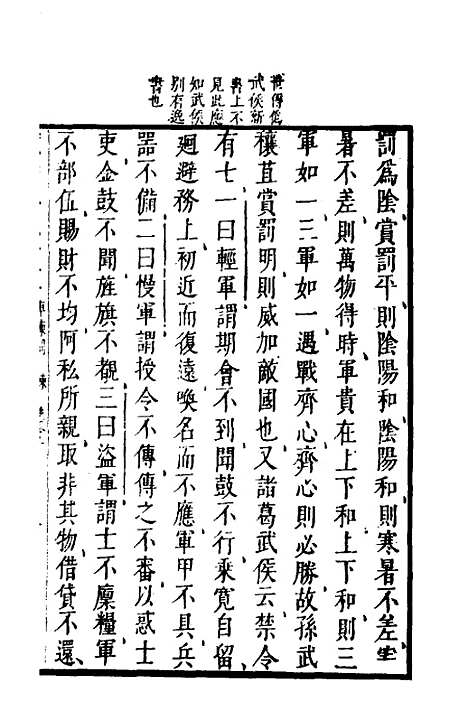 世傳僞
武侯新
書上不
見此應
知武侯
別有逸
書也
罰爲陰賞罰平則陰陽和陰陽和則寒暑不差寒
暑不差則萬物得時軍貴在上下和上下和則三
軍如一三軍如一遇戰齊心齊心則必勝故孫武
穰苴賞罰明則威加敵國也又諸葛武侯云禁令
有七一曰輕軍謂期會不到聞鼓不行乘寬自留
廻避務上初近而復遠喚名而不應軍甲不具兵
器不備二曰慢軍謂授令不傳傳之不審以惑士
吏金鼓不聞旌旗不覩三曰盜軍謂士不廩糧軍
不部伍賜財不均阿私所親取非其物借貸不還